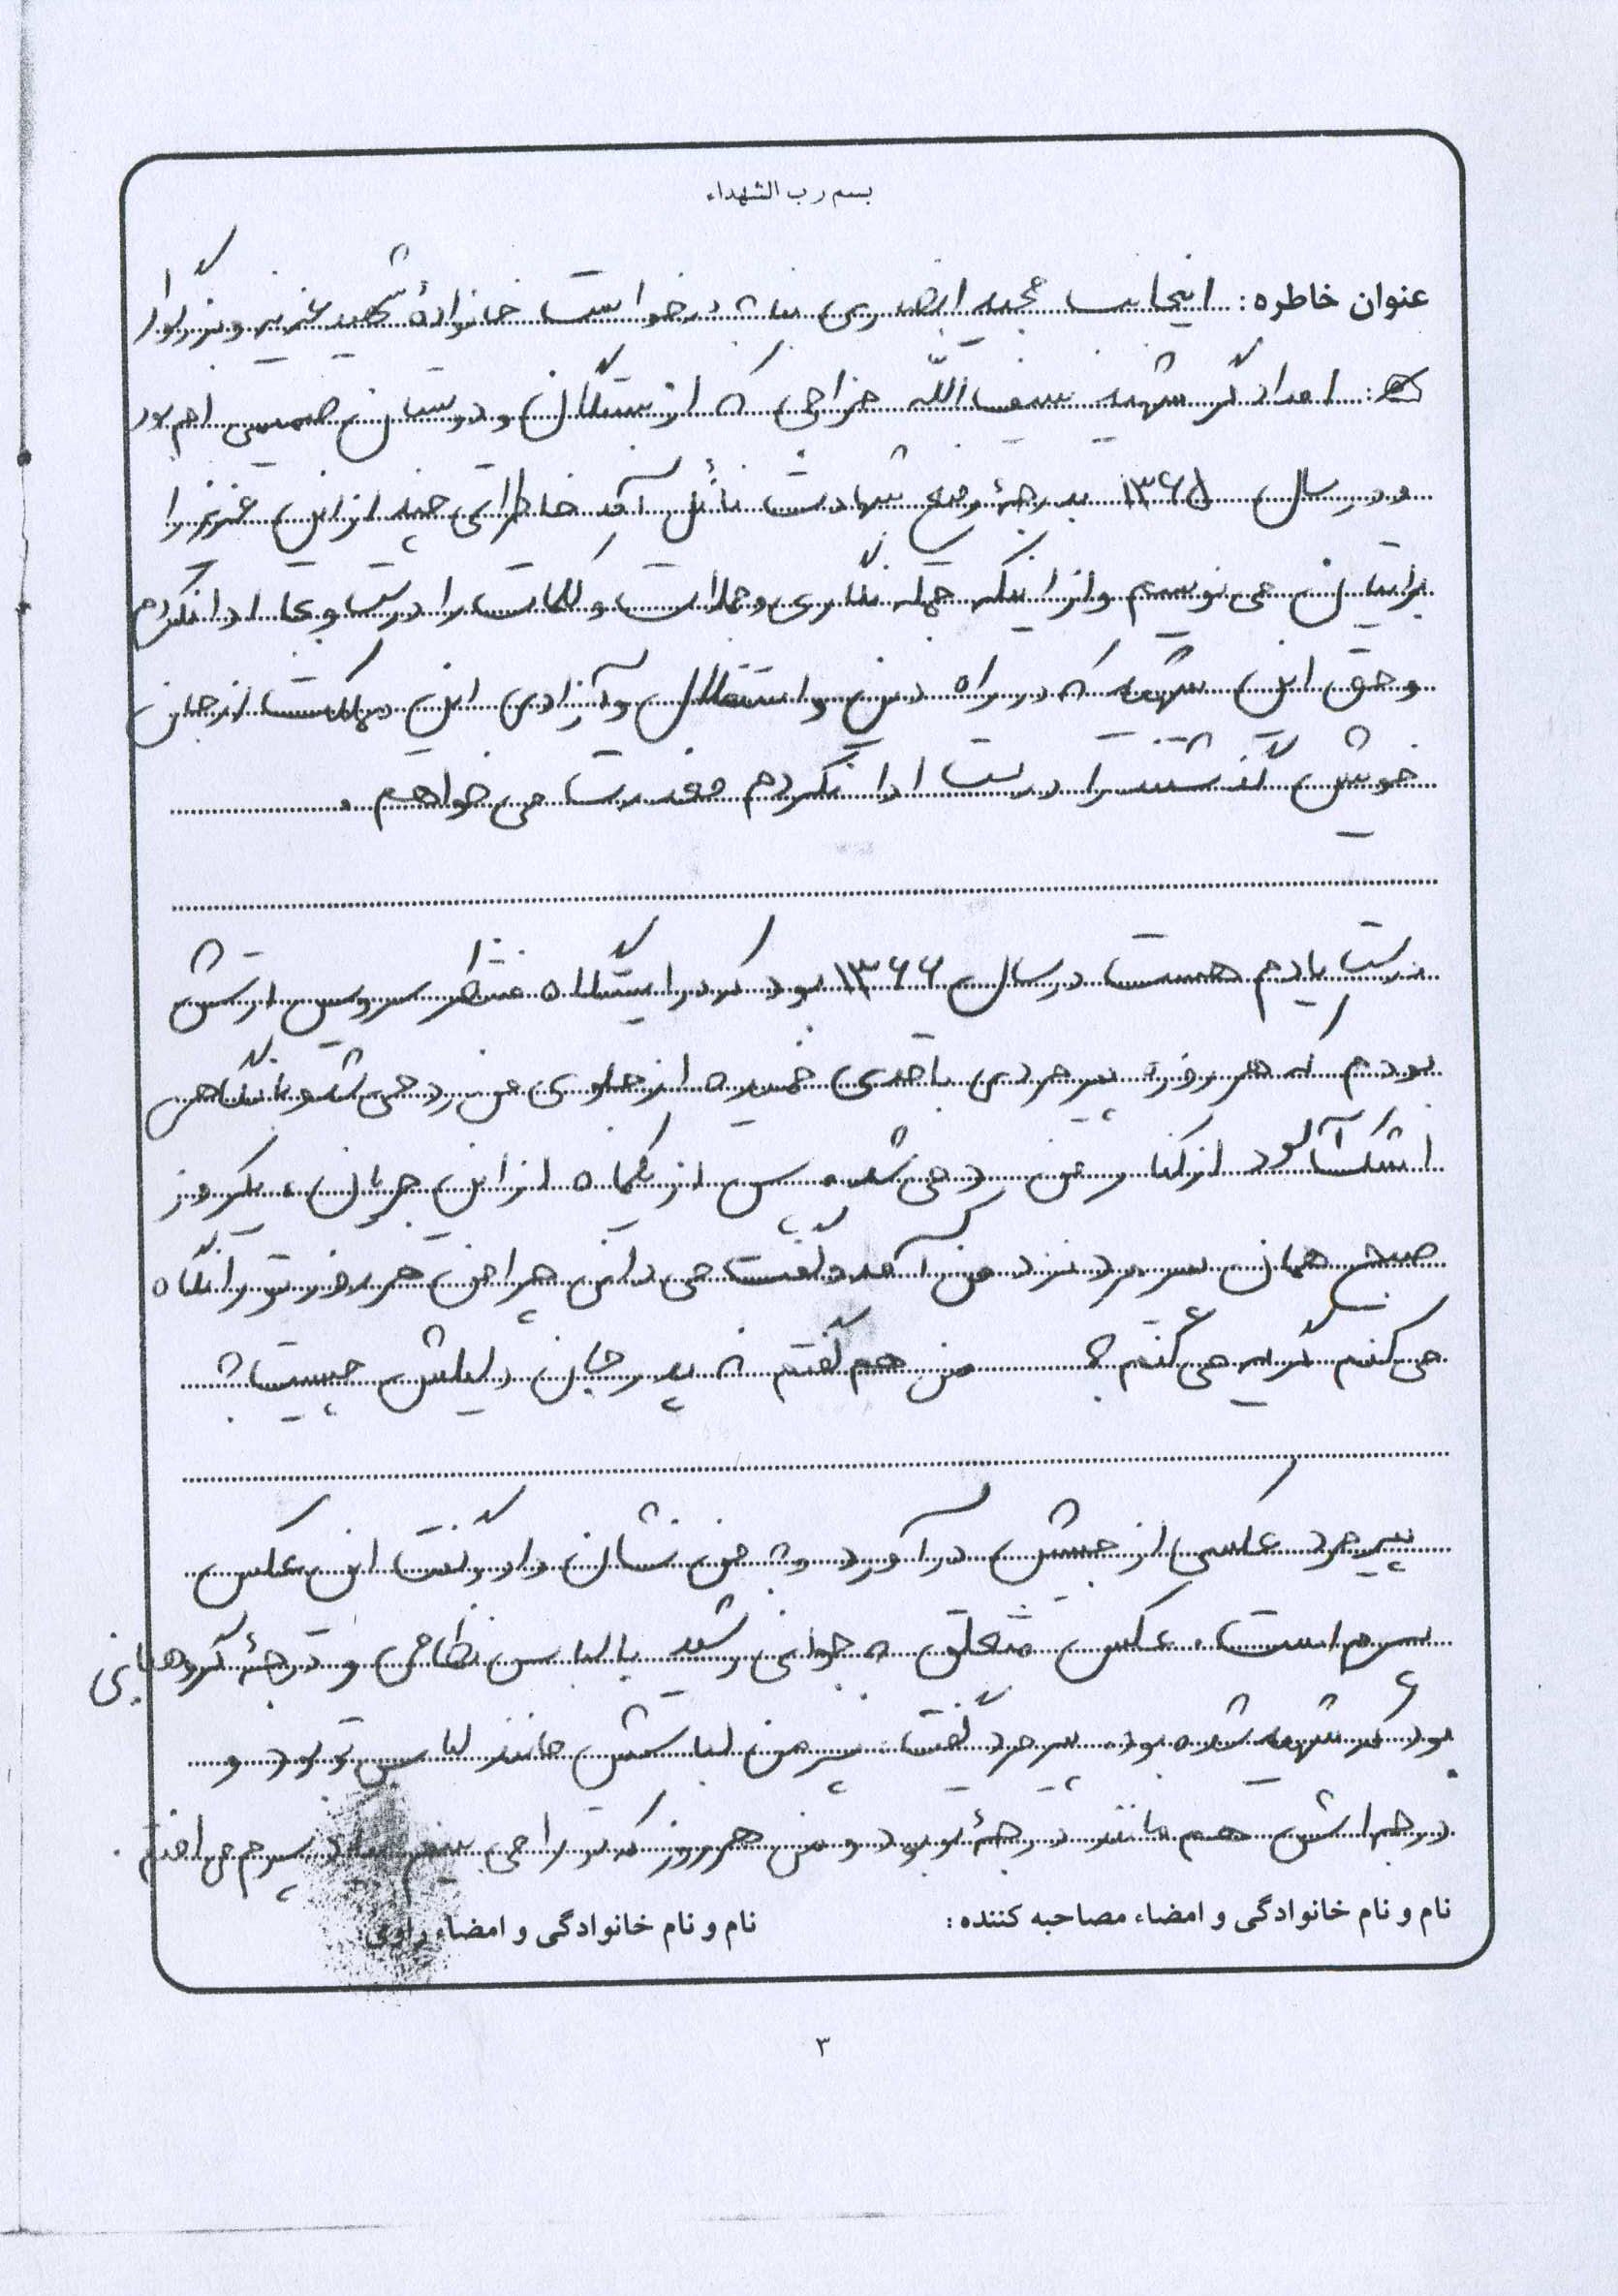 بسم رب الشهداء
عنوان خاطره: اینجانب مجید بنا به درخواست خانوادهٔ شهید عزیز و بزرگوار
امدادگر شهید سیف الله که از بستگان و دوستان صمیمی ام بود
و در سال ۱۳۶۵ به درجهٔ رفیع شهادت نائل آمد خاطراتی چند از این عزیز را
برایتان می نویسم و از اینکه جمله نگاری و جملات و کلمات را درست و بجا ادا نکردم
و حق این شهید که در راه دین و استقلال و آزادی این مملکت از جان
خویش گذشته را درست ادا نکردم معذرت می خواهم .
درست یادم هست در سال ۱۳۶۶ بود که در ایستگاه منتظر سرویس ارتش
بودم که هر روز پیرمردی با قدی خمیده از جلوی من رد می شد و با نگاهی
اشک آلود از کنار من رد می شد . پس از یکماه از این جریان ، یکروز
صبح همان پیرمرد نزد من آمد و گفت می دانی چرا من هر روز تو را نگاه
می کنم گریه می کنم ؟ من هم گفتم نه پدر جان دلیلش چیست ؟
پیرمرد عکسی از جیبش درآورد و به من نشان داد و گفت این عکس
پسرم است . عکس متعلق به جوانی رشید با لباس نظامی و درجهٔ گروهبانی
بود که شهید شده بود . پیرمرد گفت پسر من لباسش مانند لباس تو بود و
درجه اش هم مانند درجهٔ تو بود و من هر روز که تو را می بینم بیاد پسرم می افتم .
نام و نام خانوادگی و امضاء مصاحبه کننده: نام و نام خانوادگی و امضاء راوی:
۳